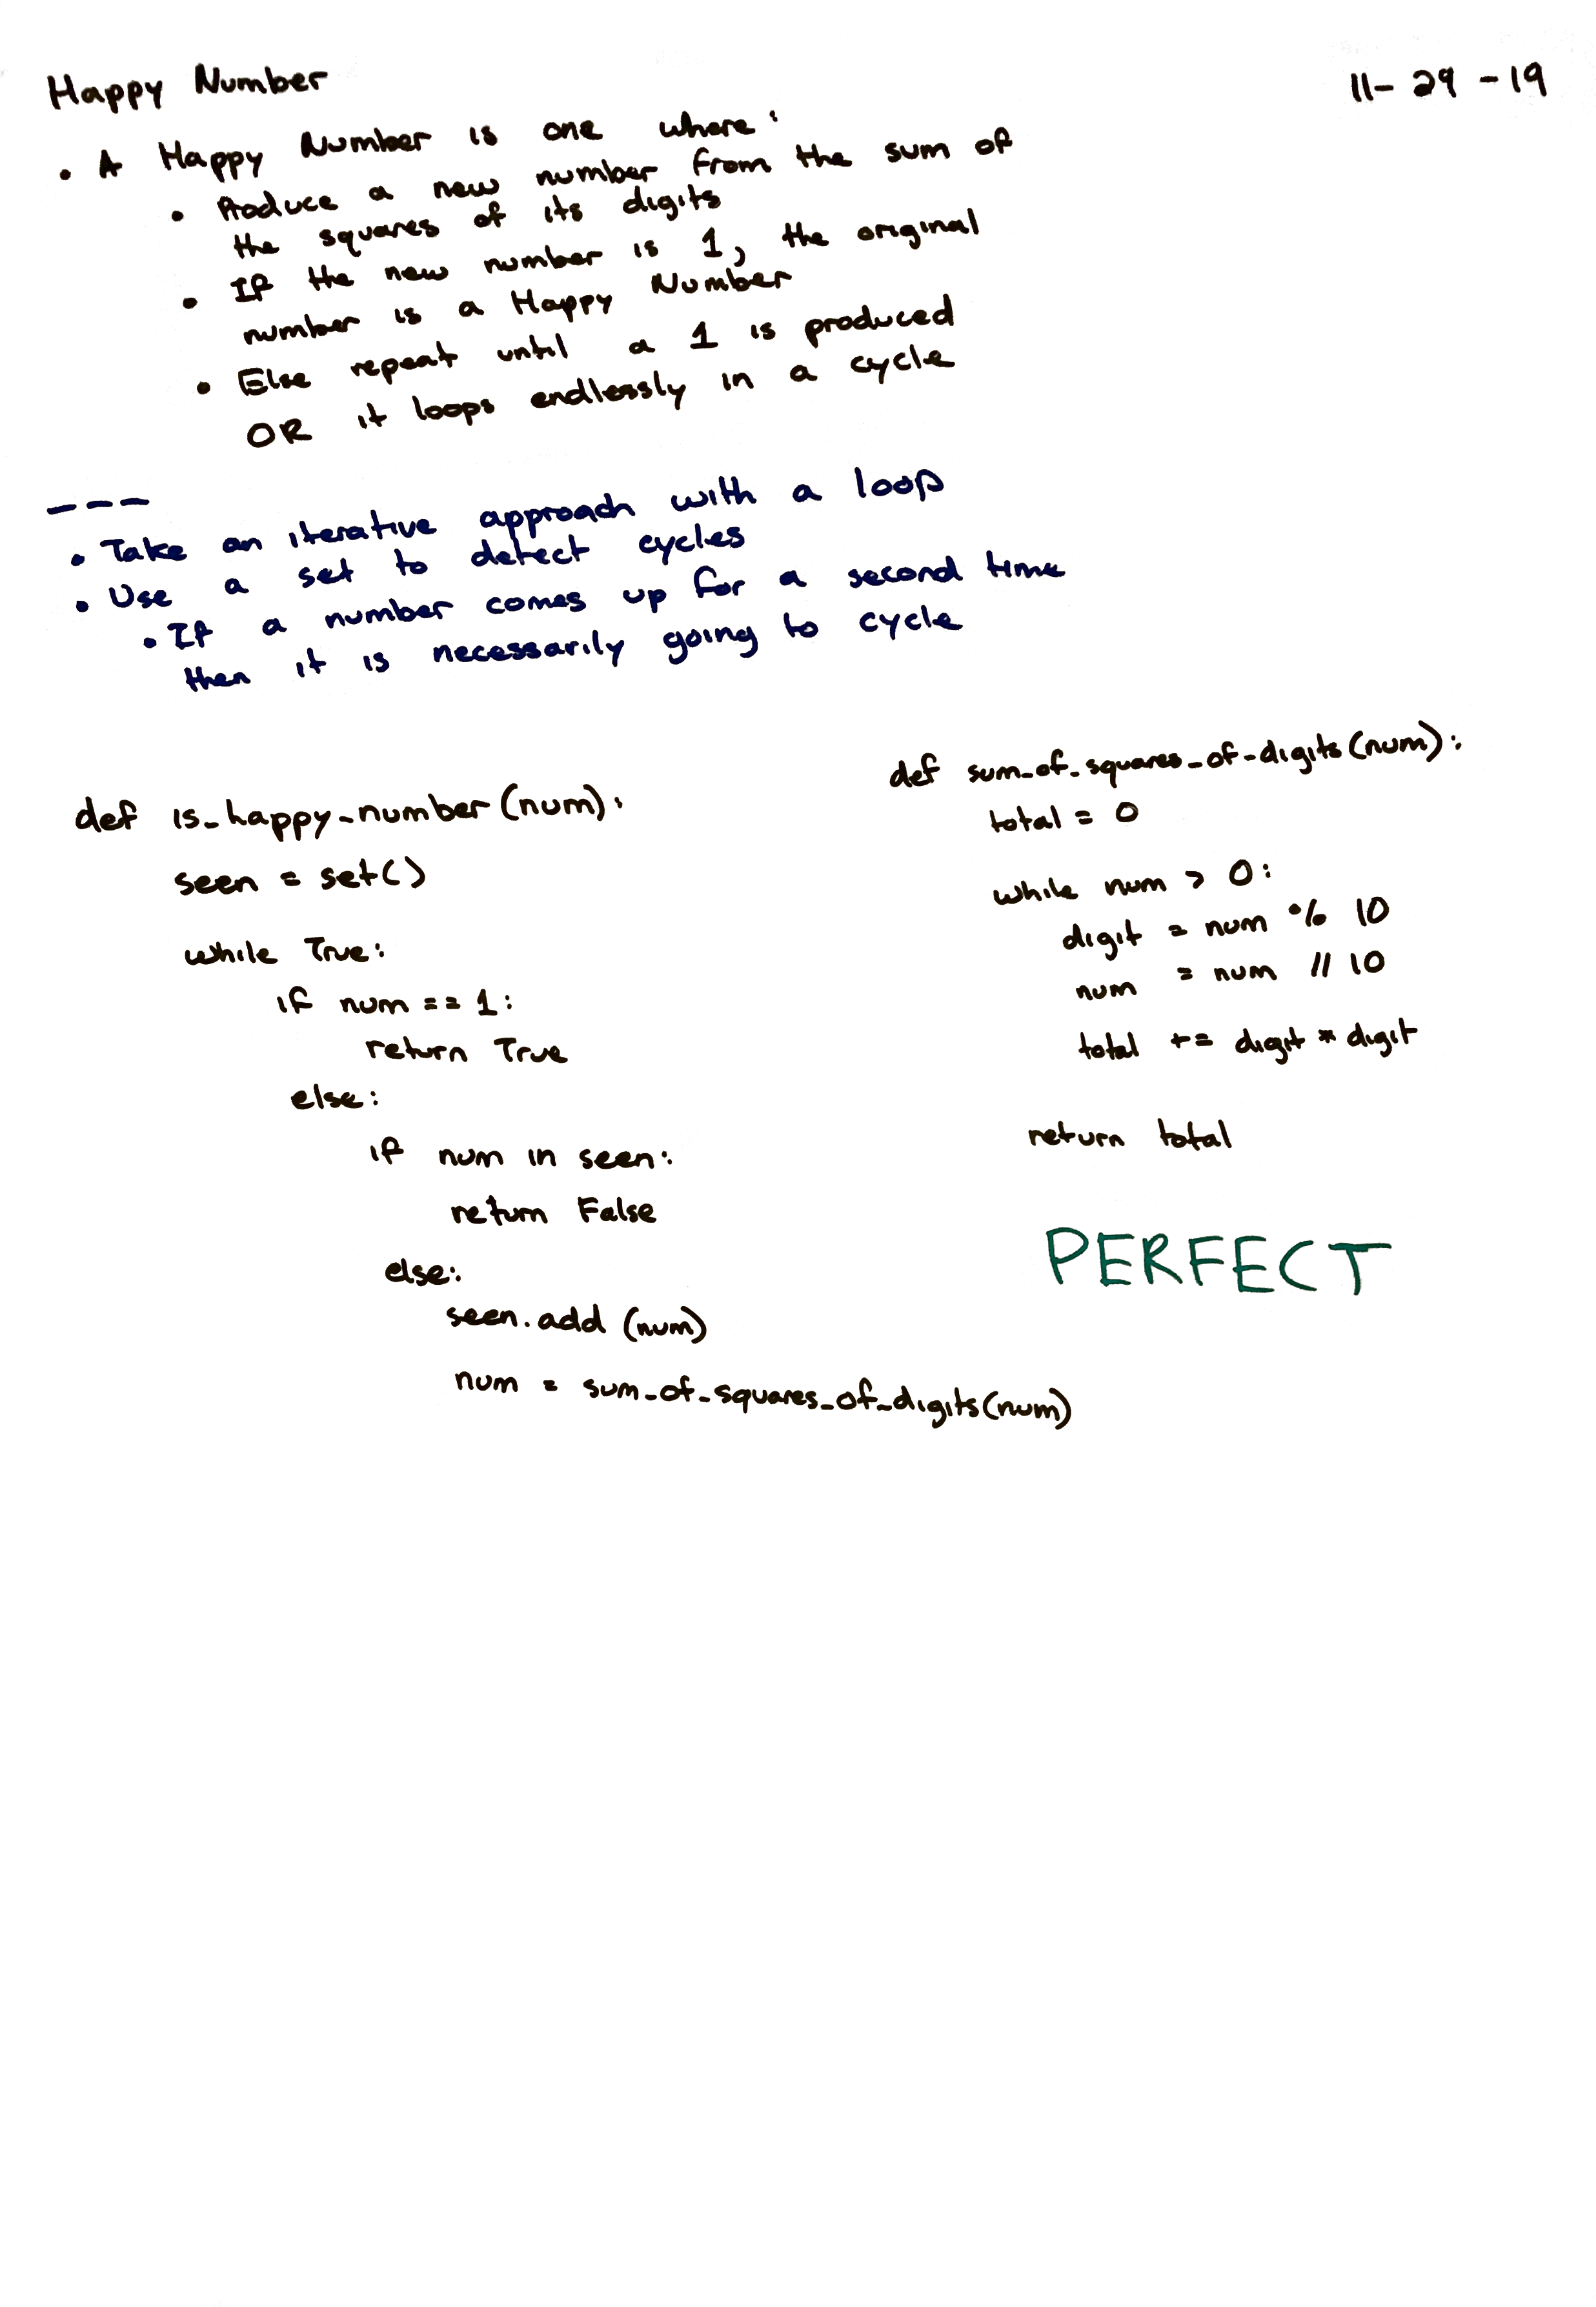 Happy Number
11-29-19
• A Happy Number is one where:
• Produce a new number from the sum of
the squares of its digits
• If the new number is 1, the original
number is a Happy Number
• Else repeat until a 1 is produced
OR it loops endlessly in a cycle
---
• Take an iterative approach with a loop
• Use a set to detect cycles
• If a number comes up for a second time
then it is necessarily going to cycle
def is_happy_number(num):
seen = set()
while True:
if num == 1:
return True
else:
if num in seen:
return False
else:
seen.add(num)
num = sum_of_squares_of_digits(num)
def sum_of_squares_of_digits(num):
total = 0
while num > 0:
digit = num % 10
num = num // 10
total += digit * digit
return total
PERFECT